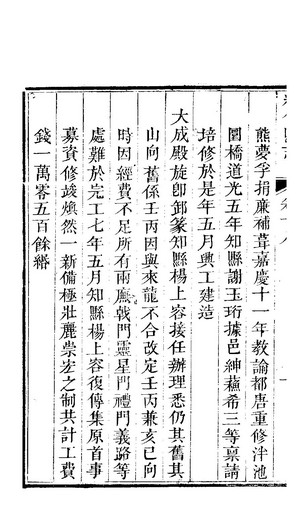 熊夢孚捐廉補葺嘉慶十一年教諭都唐重修泮池
圜橋道光五年知縣謝玉珩據邑紳蘓希三等稟請
培修於是年五月興工建造
大成殿旋卽卸篆知縣楊上容接任辦理悉仍其舊其
山向舊係壬丙因與來龍不合改定壬丙兼亥巳向
時因經費不足所有兩廡戟門靈星門禮門義路等
處難於完工七年五月知縣楊上容復傳集原首事
募資修竣煥然一新備極壯麗崇宏之制共計工費
錢一萬零五百餘緡